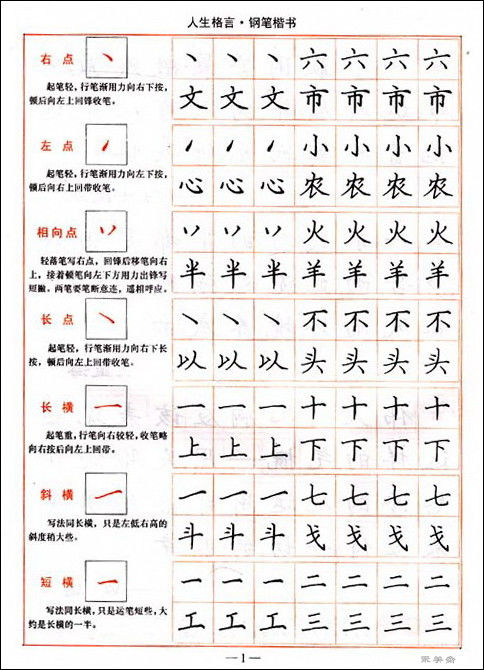 人生格言·钢笔楷书
右点 丶 丶 丶 丶 六 六 六 六
起笔轻,行笔渐用力向右下按,
顿后向左上回锋收笔。
文 文 文 市 市 市 市
左点 小 小 小 小
起笔轻,行笔渐用力向左下按,
顿后向右上回带收笔。
心 心 心 农 农 农 农
相向点 火 火 火 火
轻落笔写右点,回锋后移笔向右
上,接着顿笔向左下方用力出锋写
短撇。两笔要笔断意连,遥相呼应。
半 半 半 羊 羊 羊 羊
长点 丶 丶 丶 丶 不 不 不 不
起笔轻,行笔渐用力向右下长
按,顿后向左上回带收笔。
以 以 以 头 头 头 头
长横 一 一 一 一 十 十 十 十
起笔重,行笔向右较轻,收笔略
向右按后向左上回带。
上 上 上 下 下 下 下
斜横 一 一 一 一 七 七 七 七
写法同长横,只是左低右高的
斜度稍大些。
斗 斗 斗 戈 戈 戈 戈
短横 一 一 一 一 二 二 二 二
写法同长横,只是运笔短些,大
约是长横的一半。
工 工 工 三 三 三 三
—1—